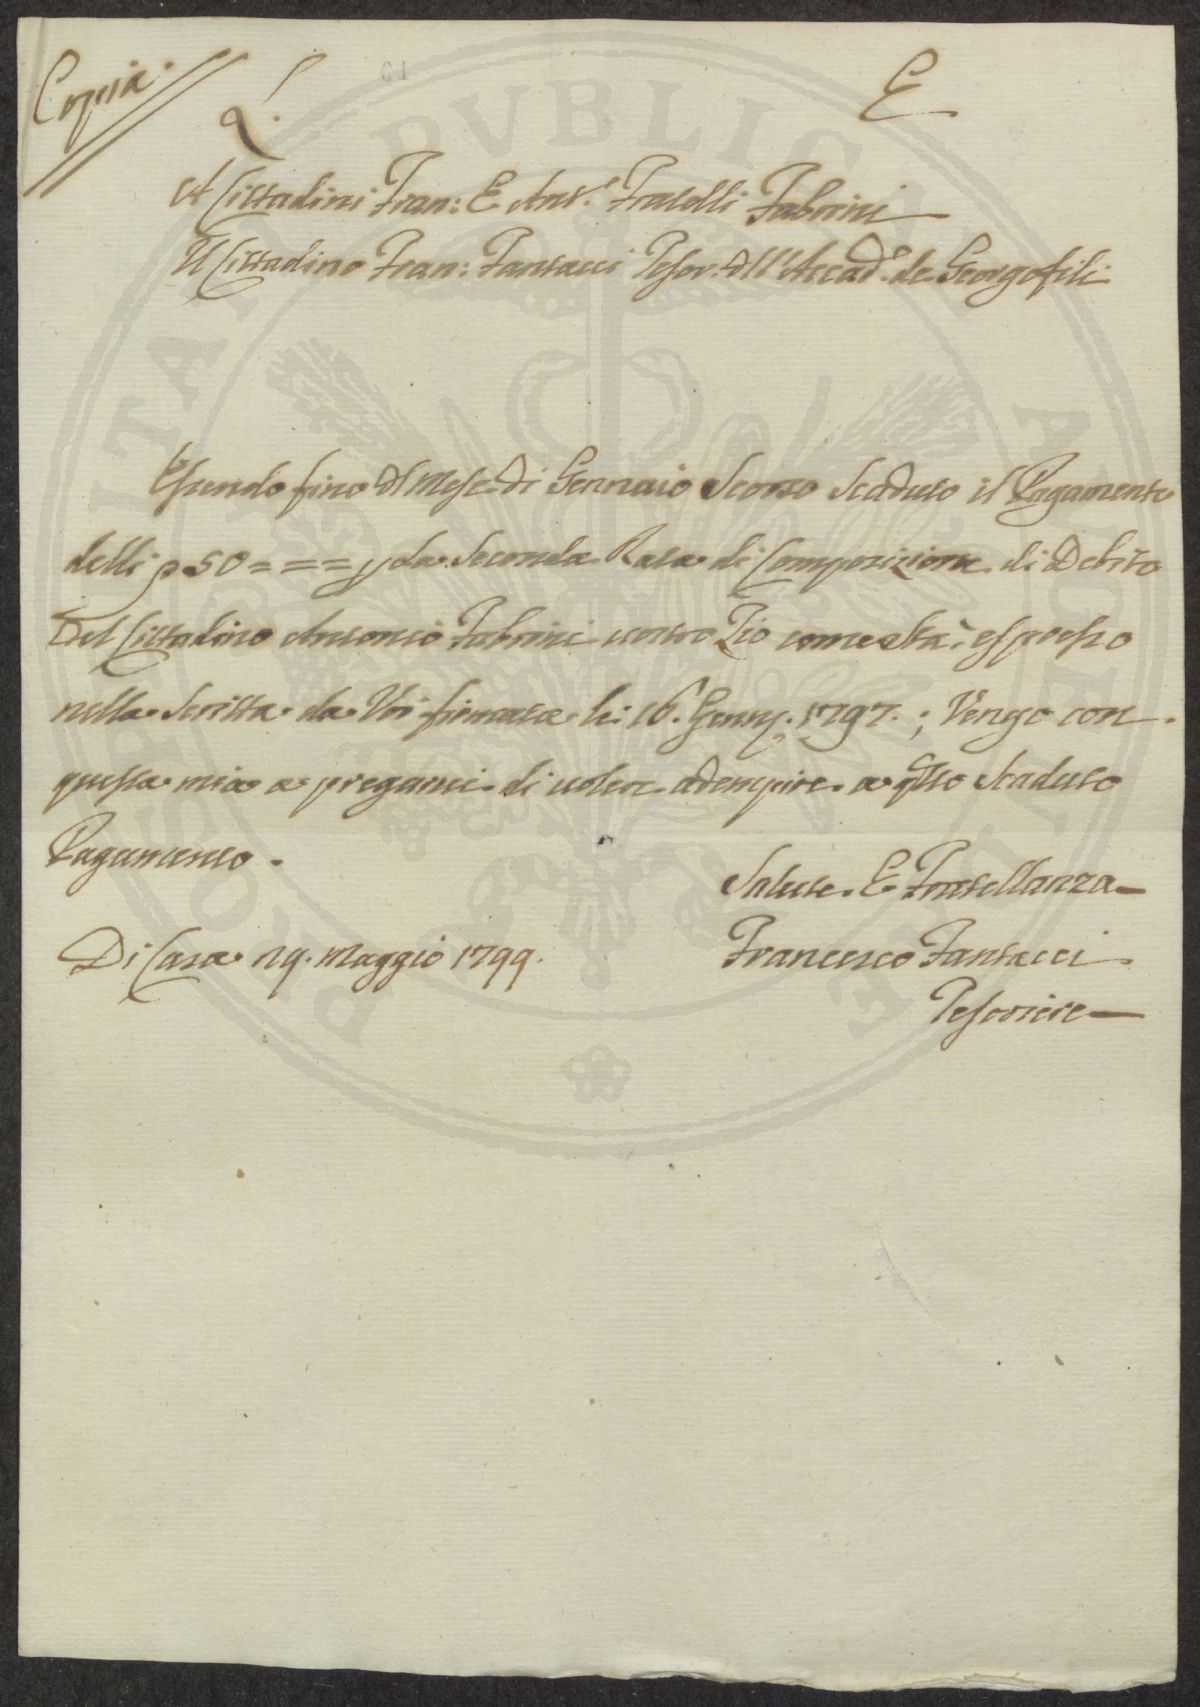 Copia.
L. E
A Cittadini Fran: E Ant.º Fratelli Fabrini
Il Cittadino Fran: Fantacci Tesor: dll' Accad.ª de Georgofili
Essendo fino dl Mese di Gennaio Scorso Scaduto il Pagamento
delli p 50 = = = p da Seconda Rata di Composizione di Debito
Del Cittadino Antonio Fabrini vostro Zio come stà espresso
nella Scritta da Voi firmata li: 16. Genn: 1797. ; Vengo con
questa mia a pregarvi di voler adempire a qsto Scaduto
Pagamento.
Salute E Fratellanza
Di Casa 29. Maggio 1799.
Francesco Fantacci
Tesoriere
PROSPERITATI PUBLICAE AUGENDAE